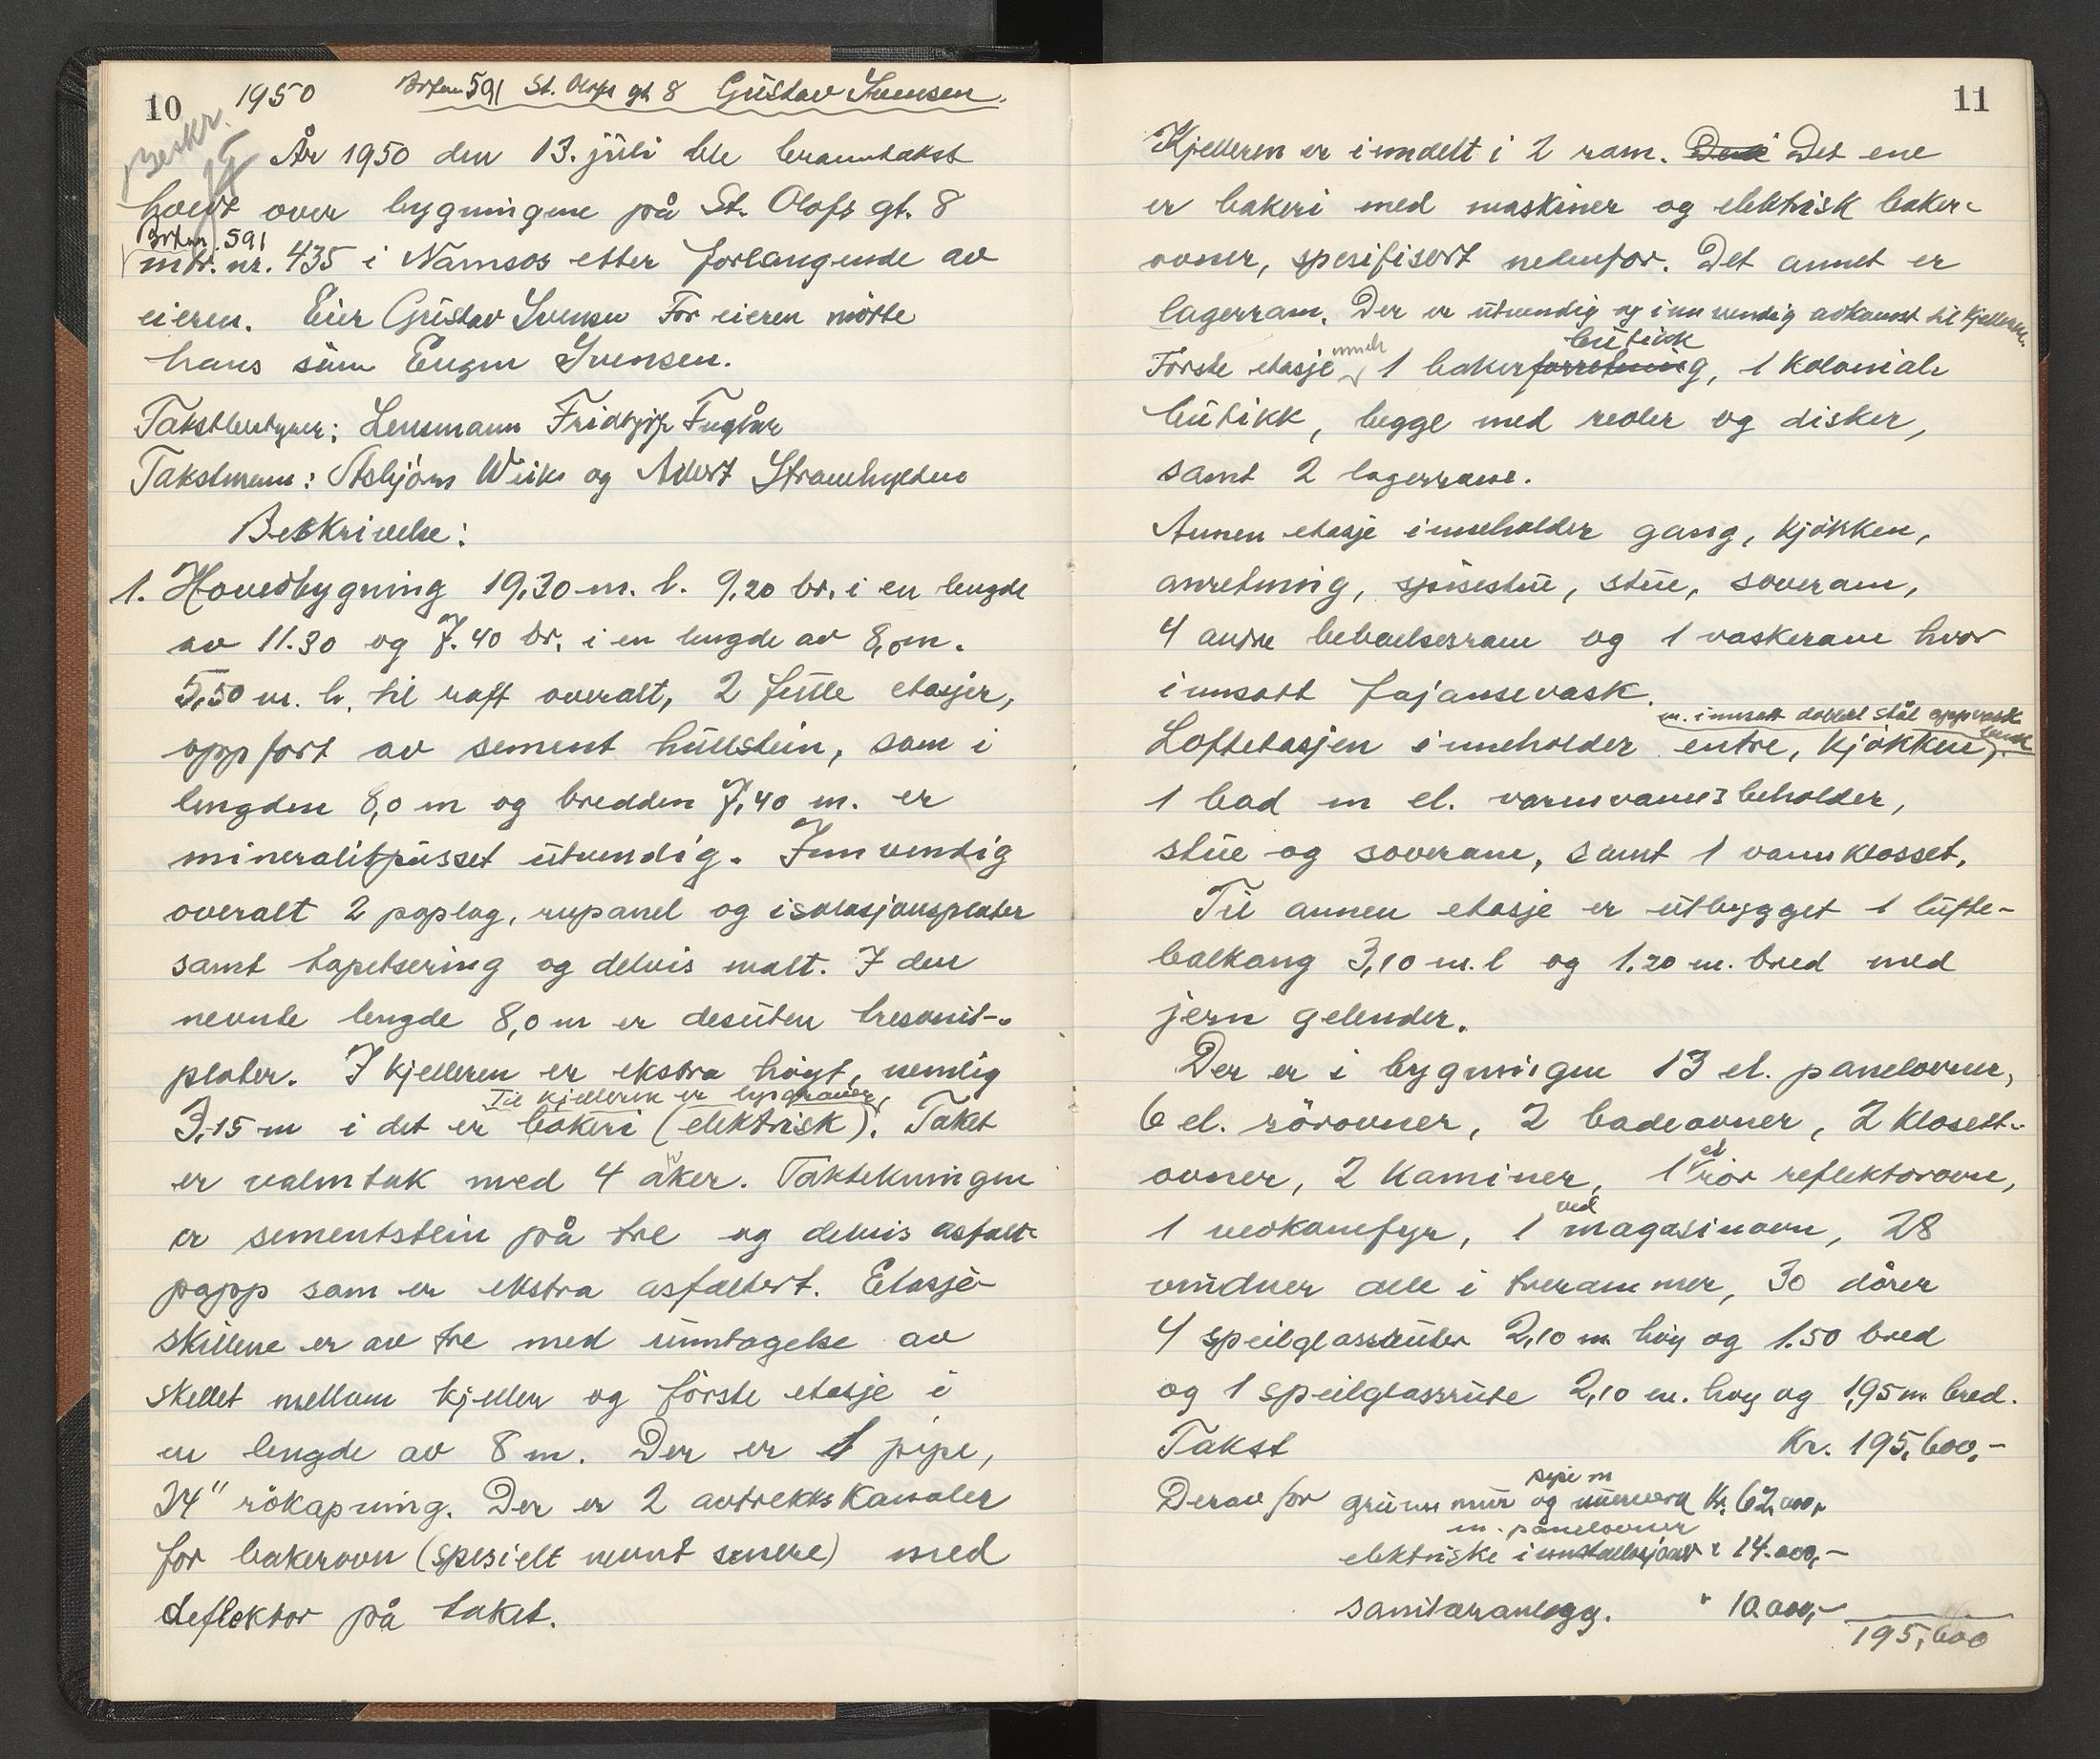 10 1950 Brtnr 591 St. Olafs gt. 8 Gustav Svensen.
Beskr.
År 1950 den 13. juli ble branntakst
holdt over bygningene på St. Olafs gt. 8
Brtnr. 591
mtr. nr. 435 i Namsos etter forlangende av
eieren. Eier Gustav Svensen For eieren møtte
hans sønn Eugen Svensen.
Takstbestyrer: Lensmann Fridtjof Fuglår
Takstmenn: Asbjørn Wiik og Albert
Beskrivelse:
1. Hovedbygning 19,30 m. l. 9,20 br. i en lengde
av 11.30 og 7.40 br. i en lengde av 8,0 m.
5,50 m. h. til raft overalt, 2 fulle etasjer,
oppført av sement hullstein, som i
lengden 8,0 m og bredden 7,40 m. er
mineralitpusset utvendig. Innvendig
overalt 2 paplag, rupanel og isolasjonsplater
samt tapetsering og delvis malt. I den
nevnte lengde 8,0 m er desuten tresonit-
plater. I kjelleren er ekstra høyt, nemlig
Til kjelleren er lysgraver,
3,15 m i det er bakeri (elektrisk). Taket
er valmtak med 4 arker. Taktekningen
er sementstein på tre og delvis asfalt-
papp som er ekstra asfaltert. Etasje-
skillene er av tre med unntagelse av
skellet mellom kjeller og første etasje i
en lengde av 8 m. Der er 1 pipe,
24" rökåpning. Der er 2 avtrekkskanaler
for bakerovn (spesielt nevnt senere) med
deflektor på taket.
11
Kjelleren er inndelt i 2 rom. Det ene
er bakeri med maskiner og elektrisk baker-
ovner, spesifisert nedenfor. Det annet er
lagerrom. Der er utvendig og innvendig adkomst til kjelleren.
inneh butikk
Første etasje 1 bakerforretning, 1 kolonial-
butikk, begge med reoler og disker,
samt 2 lagerrom.
Annen etasje inneholder gang, kjøkken,
anretning, spisestue, stue, soverom,
4 andre beboelsesrom og 1 vaskerom hvor
innsatt fajansevask.
m. innsatt dobbel stål oppvask benk
Loftetasjen inneholder entre, kjøkken,
1 bad m el. varmvannsbeholder,
stue og soverom, samt 1 vannklosset.
Til annen etasje er utbygget 1 lufte-
balkong 3,10 m. l og 1.20 m. bred med
jern gelender.
Der er i bygningen 13 el. panelovner,
6 el. rörovner, 2 badeovner, 2 klosett-
el
ovner, 2 kaminer, 1 rör reflektorovn,
ved
1 vedkomfyr, 1 magasinovn, 28
vinduer alle i trerammer, 30 dører
4 speilglassruter 2,10 m høy og 1.50 bred
og 1 speilglassrute 2,10 m. høy og 1,95 m. bred.
Takst Kr. 195,600,-
pipe m
Derav for grunnmur og murverk Kr. 62.000,-
m. panelovner
elektriske innstallasjoner " 14.000,-
sanitæranlegg. " 10.000,-
195,600